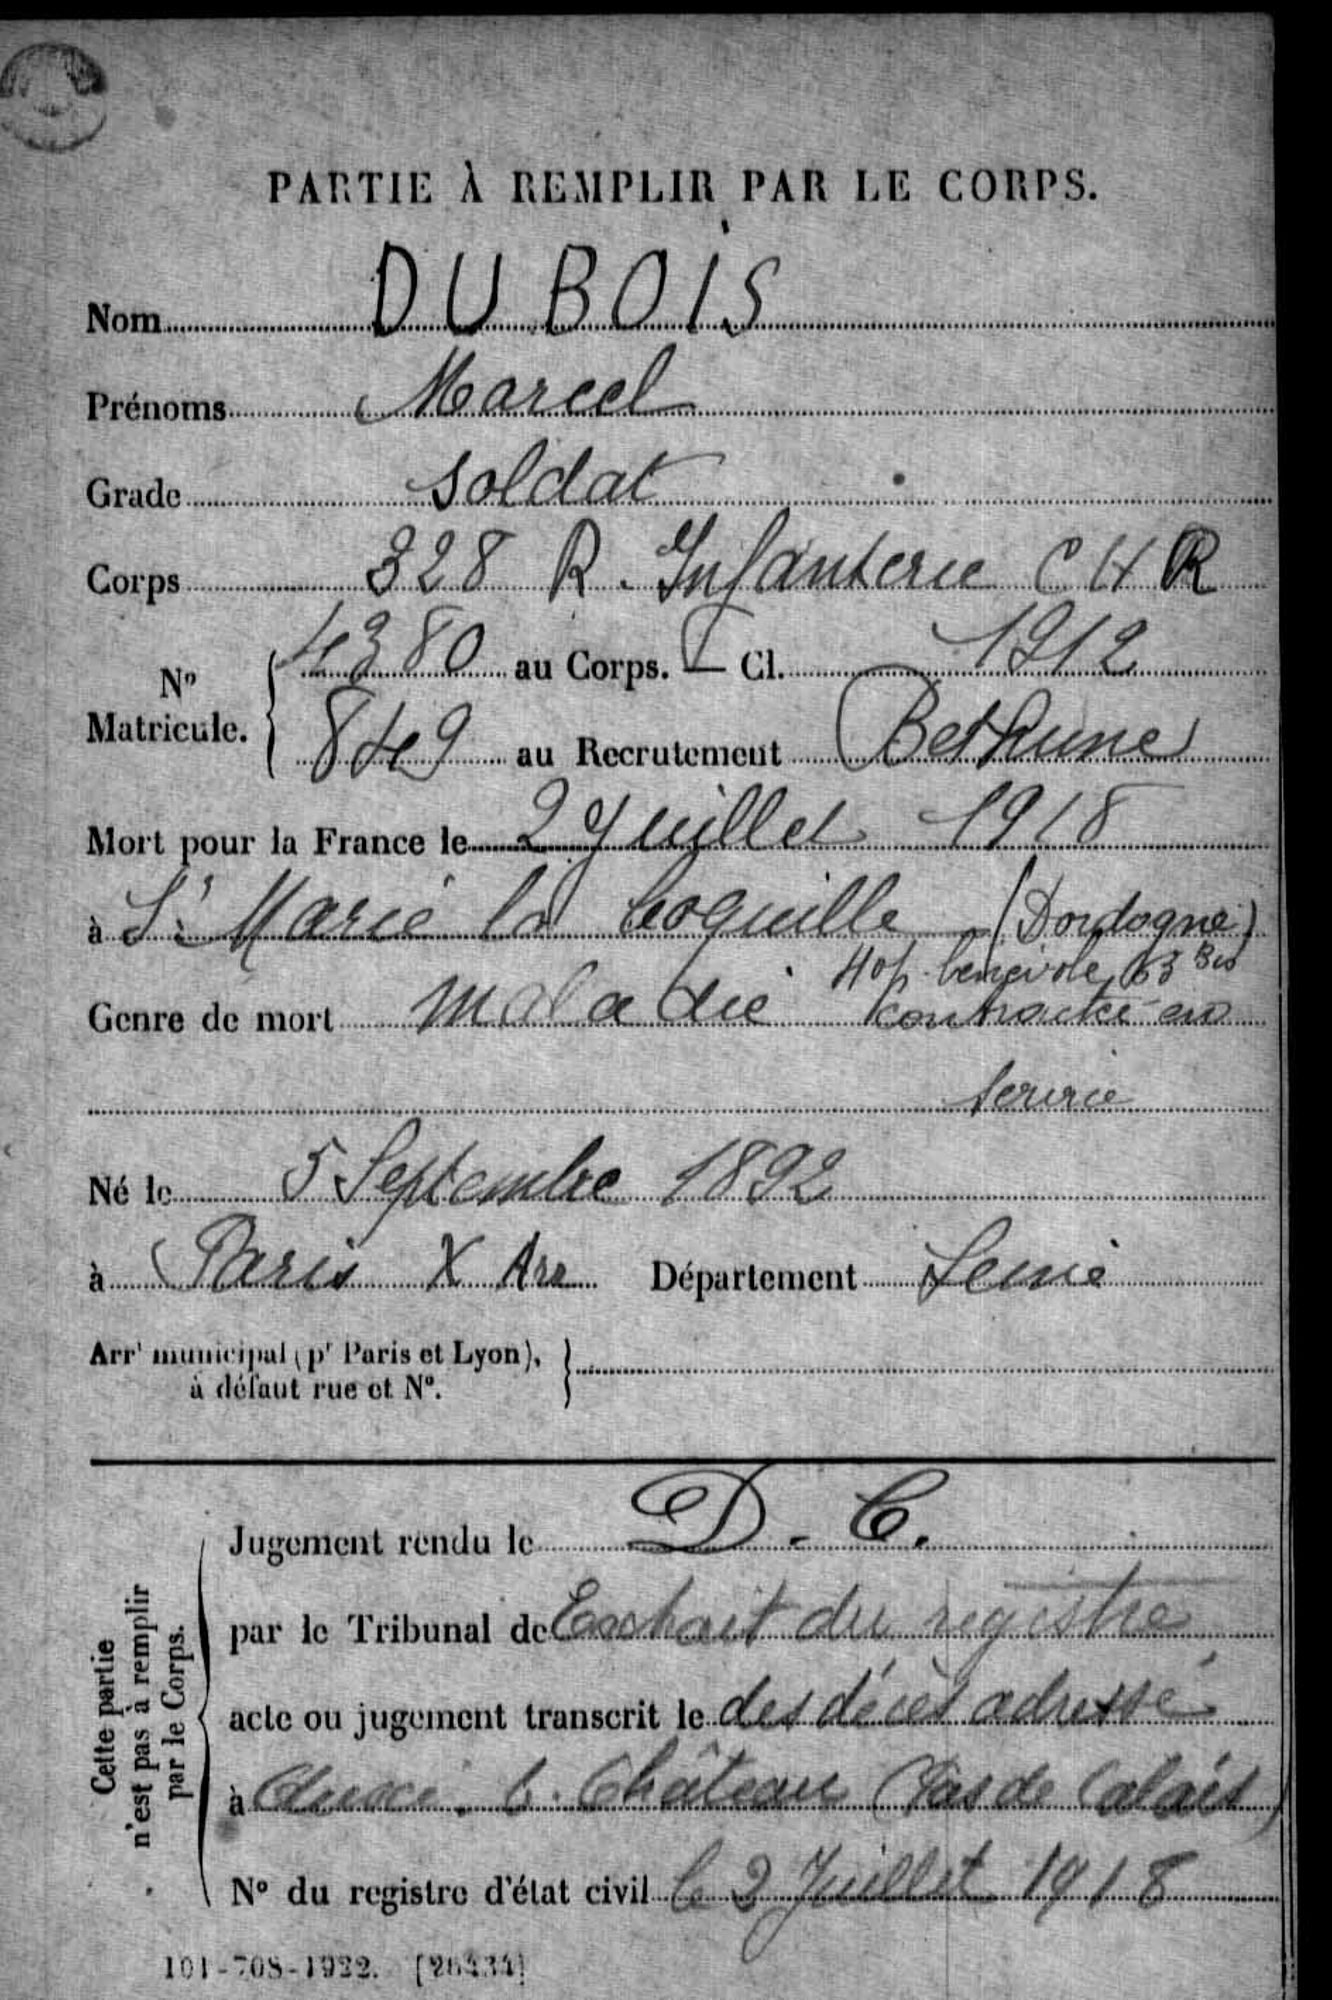 PARTIE À REMPLIR PAR LE CORPS.
Nom DUBOIS
Prénoms Marcel
Grade Soldat
Corps 328 R. Infanterie CHR
No Matricule. 4380 au Corps. Cl. 1912
849 au Recrutement Bethune
Mort pour la France le 2 Juillet 1918
à Ste Marie la Coquille (Dordogne)
Hop. bénévole 63 Bis
Genre de mort maladie contractée en
service
Né le 5 Septembre 1892
à Paris X Arr Département Seine
Arrt municipal (pr Paris et Lyon),
à défaut rue et No.
Cette partie
n'est pas à remplir
par le Corps.
Jugement rendu le D. C.
par le Tribunal de Extrait du registre
acte ou jugement transcrit le des décès adressé
à Auxi. l. Château (Pas de Calais)
No du registre d'état civil le 2 Juillet 1918
101-708-1922. [26434]